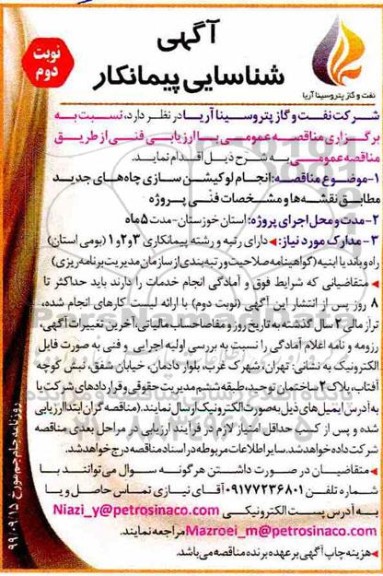 آگهی
شناسایی پیمانکار
نوبت
دوم
نفت و گاز پتروسینا آریا
شرکت نفت و گاز پتروسینا آریا در نظر دارد، نسبت به
برگزاری مناقصه عمومی با ارزیابی فنی از طریق
مناقصه عمومی به شرح ذیل اقدام نماید.
۱-موضوع مناقصه: انجام لوکیشن سازی چاه‌های جدید
مطابق نقشه‌ها و مشخصات فنی پروژه
۲-مدت و محل اجرای پروژه: استان خوزستان-مدت ۵ ماه
۳- مدارک مورد نیاز: ◄دارای رتبه و رشته پیمانکاری ۳و۲و۱ (بومی استان)
راه و باند یا ابنیه (گواهینامه صلاحیت و رتبه‌بندی از سازمان مدیریت برنامه‌ریزی)
◄متقاضیانی که شرایط فوق و آمادگی انجام خدمات را دارند باید حداکثر تا
۸ روز پس از انتشار این آگهی (نوبت دوم) با ارائه لیست کارهای انجام شده،
تراز مالی ۲ سال گذشته به تاریخ روز و مفاصاحساب مالیاتی، آخرین تغییرات آگهی،
رزومه و نامه اعلام آمادگی را نسبت به بررسی اولیه اجرایی و فنی به صورت فایل
الکترونیک به نشانی: تهران، شهرک غرب، بلوار دادمان، خیابان شفق، نبش کوچه
آفتاب، پلاک ۲ ساختمان توحید، طبقه ششم مدیریت حقوقی و قراردادهای شرکت یا
به آدرس ایمیل‌های ذیل به صورت الکترونیک ارسال نمایند. (مناقصه گران ابتدا ارزیابی
شده و پس از کسب حداقل امتیاز لازم در فرآیند ارزیابی در مراحل بعدی مناقصه
شرکت داده خواهند شد. سایر اطلاعات مربوطه در اسناد مناقصه درج خواهد شد.
◄متقاضیان در صورت داشتن هرگونه سوال می‌توانند با
شماره تلفن ۰۹۱۷۷۲۳۶۸۰۱ آقای نیازی تماس حاصل و یا
به آدرس پست الکترونیکی Niazi_y@petrosinaco.com
Mazroei_m@petrosinaco.com مراجعه نمایند.
◄هزینه چاپ آگهی بر عهده برنده مناقصه می‌باشد.
روزنامه جام جم مورخ ۹۹/۰۹/۱۵